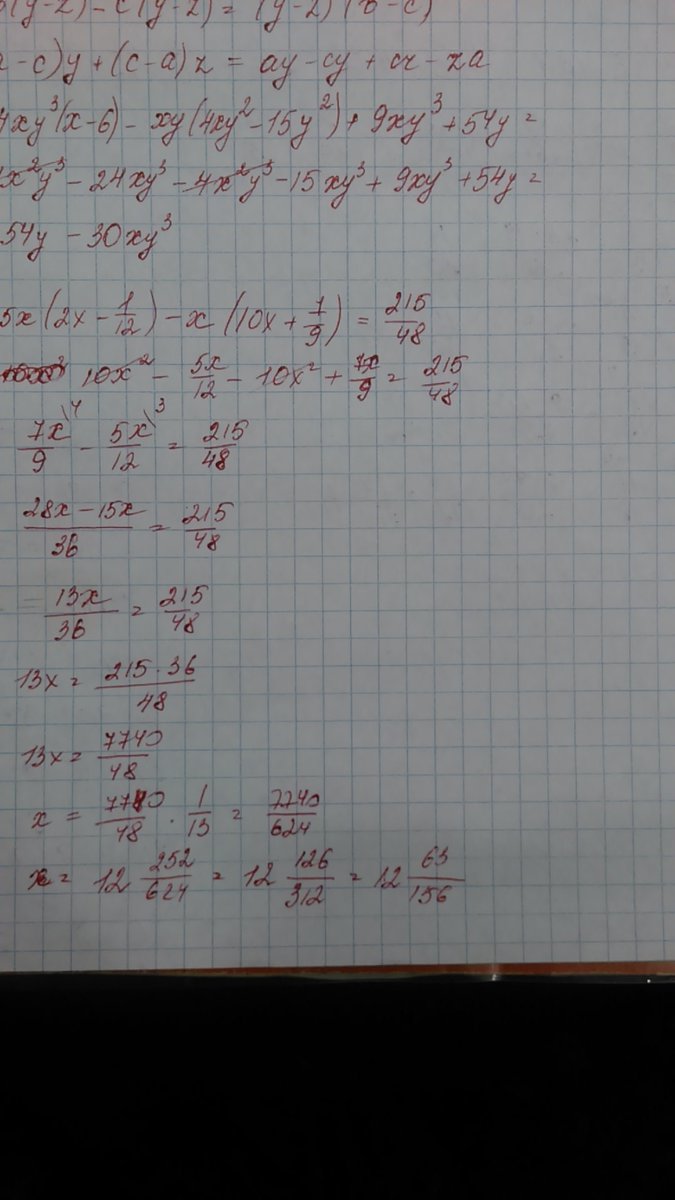 (y-z) - c(y-z) = (y-z)(b-c)
-c)y + (c-a)z = ay - cy + cz - za
4xy³(x-6) - xy(4xy² - 15y²) + 9xy³ + 54y =
4x²y³ - 24xy³ - 4x²y³ - 15xy³ + 9xy³ + 54y =
54y - 30xy³
5x(2x - 1/12) - x(10x + 7/9) = 215/48
10x² - 5x/12 - 10x² + 7x/9 = 215/48
7x\4/9 - 5x\3/12 = 215/48
(28x - 15x)/36 = 215/48
13x/36 = 215/48
13x = (215 · 36)/48
13x = 7740/48
x = 7740/48 · 1/13 = 7740/624
x = 12 252/624 = 12 126/312 = 12 63/156